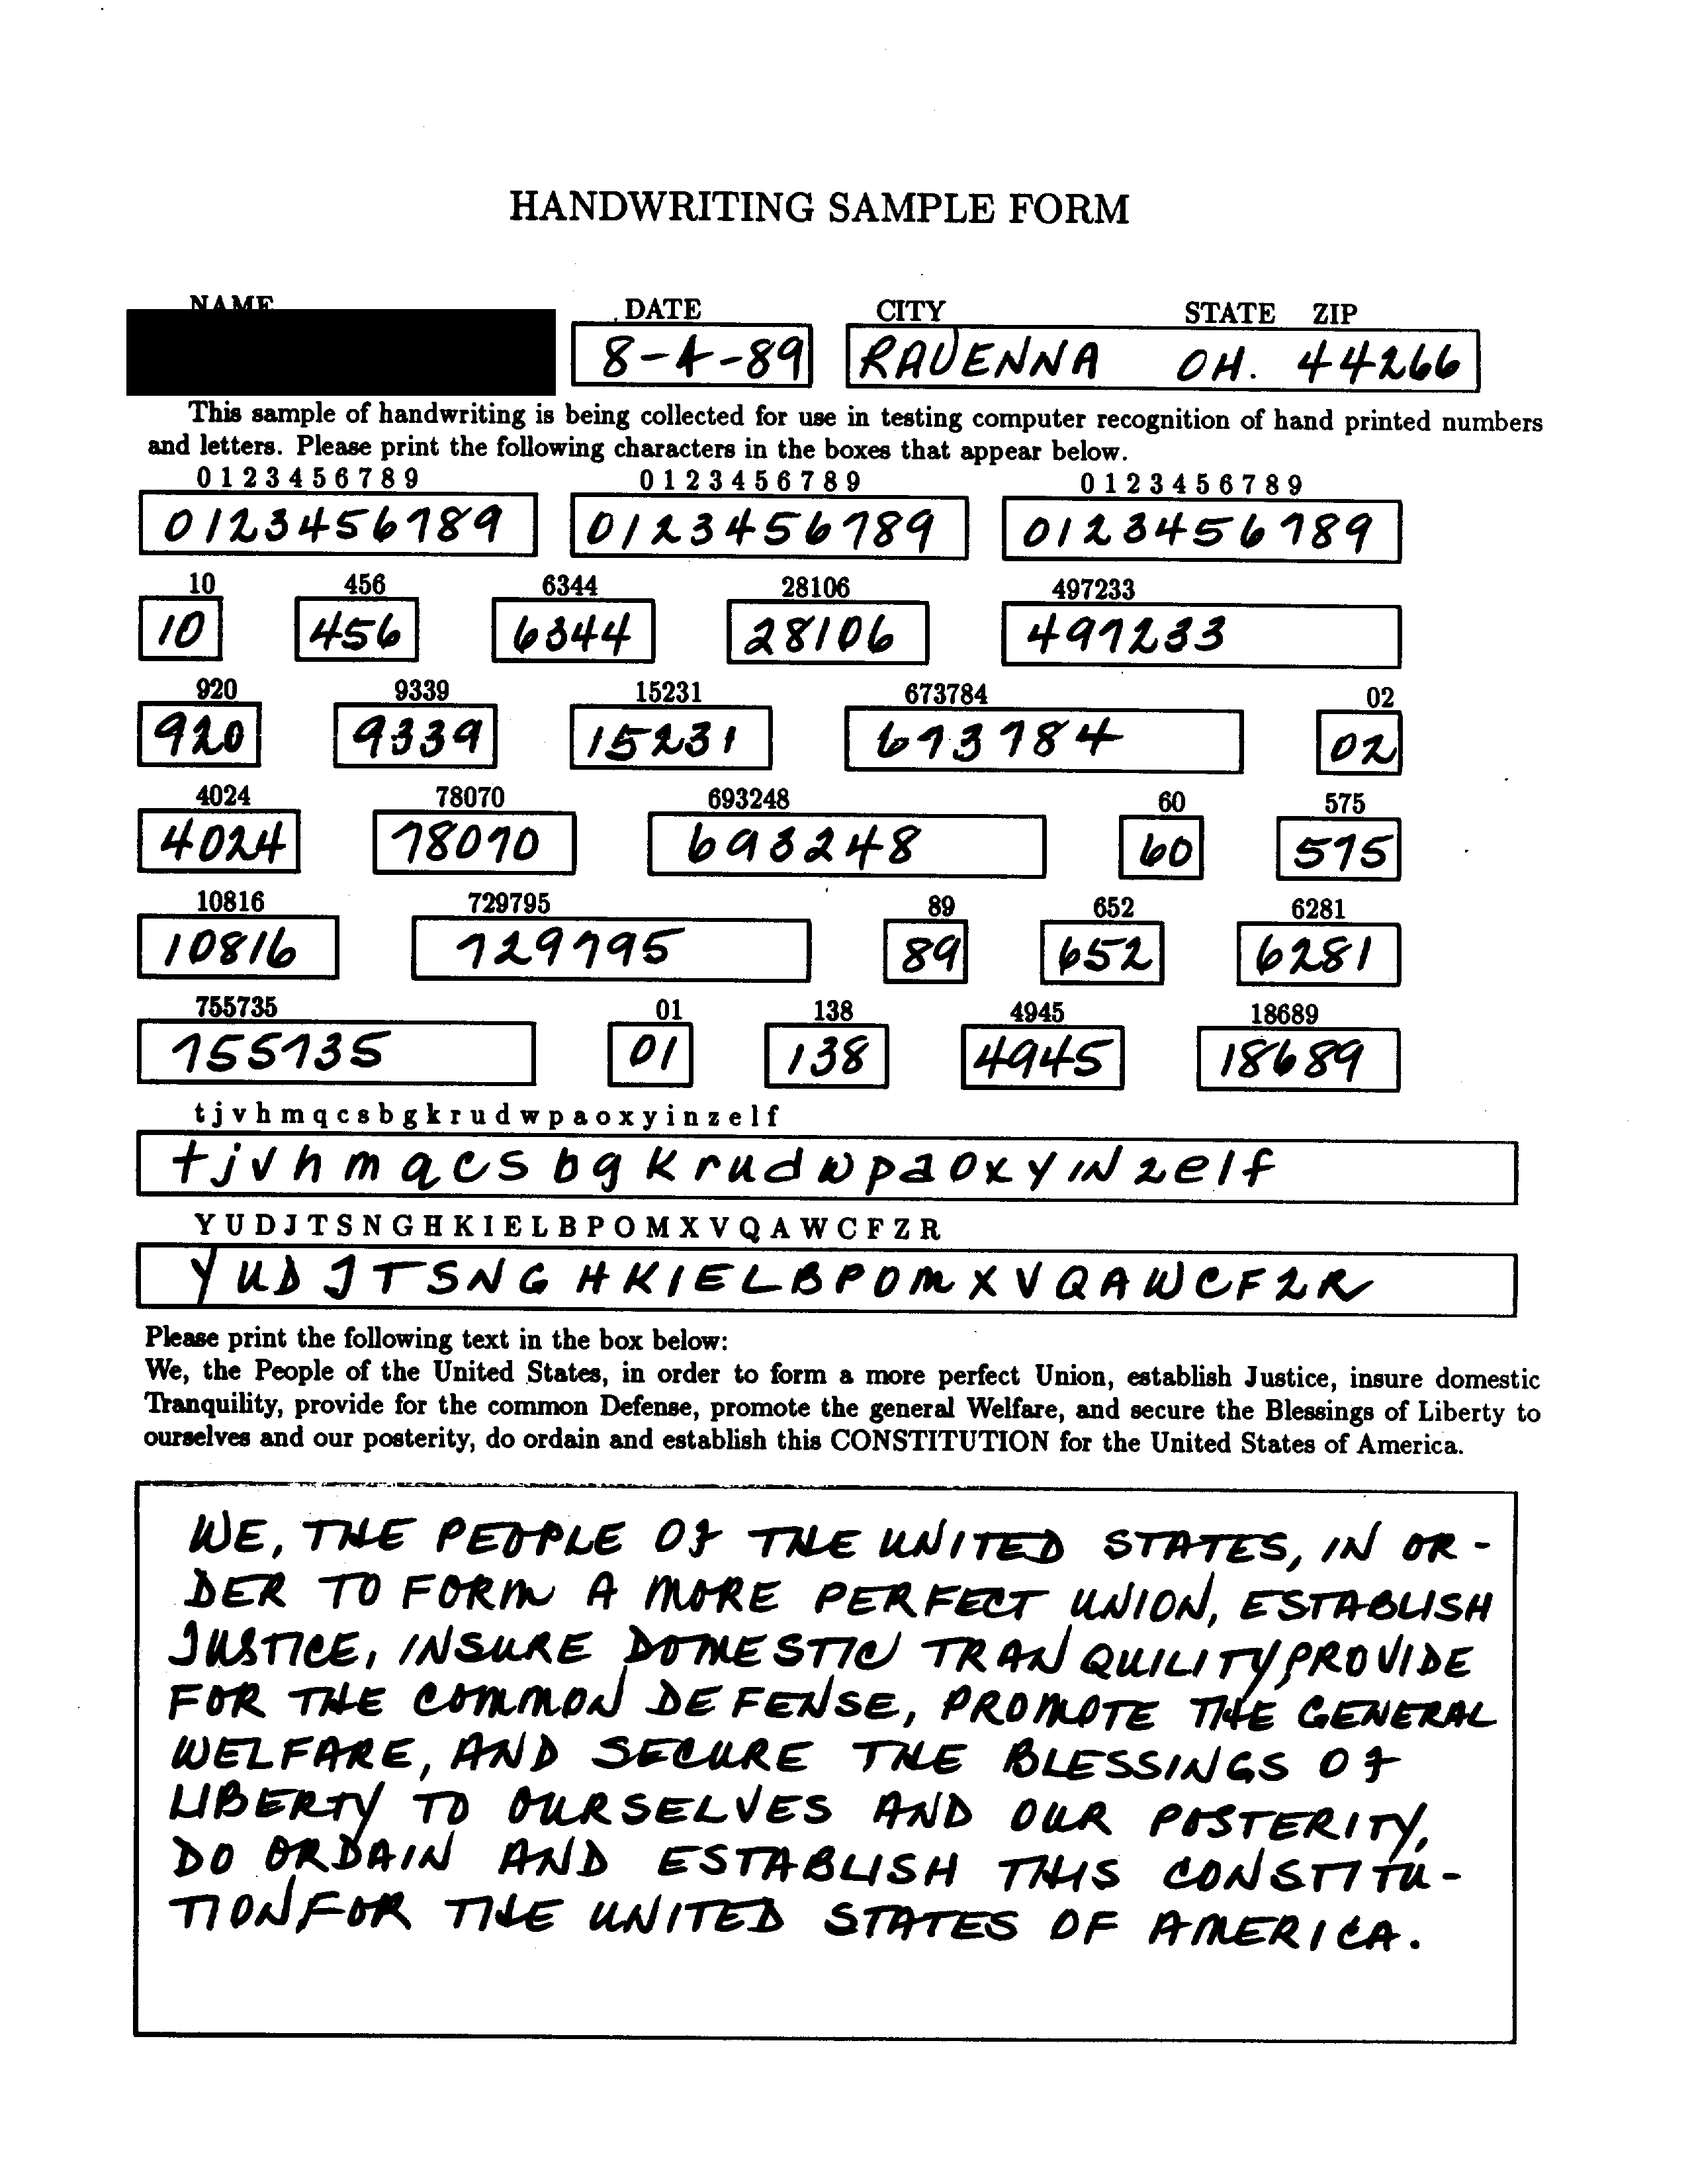 HANDWRITING SAMPLE FORM
NAME DATE CITY STATE ZIP
8-4-89 RAVENNA OH. 44266
This sample of handwriting is being collected for use in testing computer recognition of hand printed numbers
and letters. Please print the following characters in the boxes that appear below.
0 1 2 3 4 5 6 7 8 9 0 1 2 3 4 5 6 7 8 9 0 1 2 3 4 5 6 7 8 9
0123456789 0123456789 0123456789
10 456 6344 28106 497233
10 456 6344 28106 497233
920 9339 15231 673784 02
920 9339 15231 673784 02
4024 78070 693248 60 575
4024 78070 693248 60 575
10816 729795 89 652 6281
10816 729795 89 652 6281
755735 01 138 4945 18689
755735 01 138 4945 18689
t j v h m q c s b g k r u d w p a o x y i n z e l f
t j v h m q c s b g k r u d w p a o x y i N z e l f
Y U D J T S N G H K I E L B P O M X V Q A W C F Z R
Y U D J T S N G H K I E L B P O M X V Q A W C F Z R
Please print the following text in the box below:
We, the People of the United States, in order to form a more perfect Union, establish Justice, insure domestic
Tranquility, provide for the common Defense, promote the general Welfare, and secure the Blessings of Liberty to
ourselves and our posterity, do ordain and establish this CONSTITUTION for the United States of America.
WE, THE PEOPLE OF THE UNITED STATES, IN OR-
DER TO FORM A MORE PERFECT UNION, ESTABLISH
JUSTICE, INSURE DOMESTIC TRANQUILITY, PROVIDE
FOR THE COMMON DEFENSE, PROMOTE THE GENERAL
WELFARE, AND SECURE THE BLESSINGS OF
LIBERTY TO OURSELVES AND OUR POSTERITY,
DO ORDAIN AND ESTABLISH THIS CONSTITU-
TION FOR THE UNITED STATES OF AMERICA.